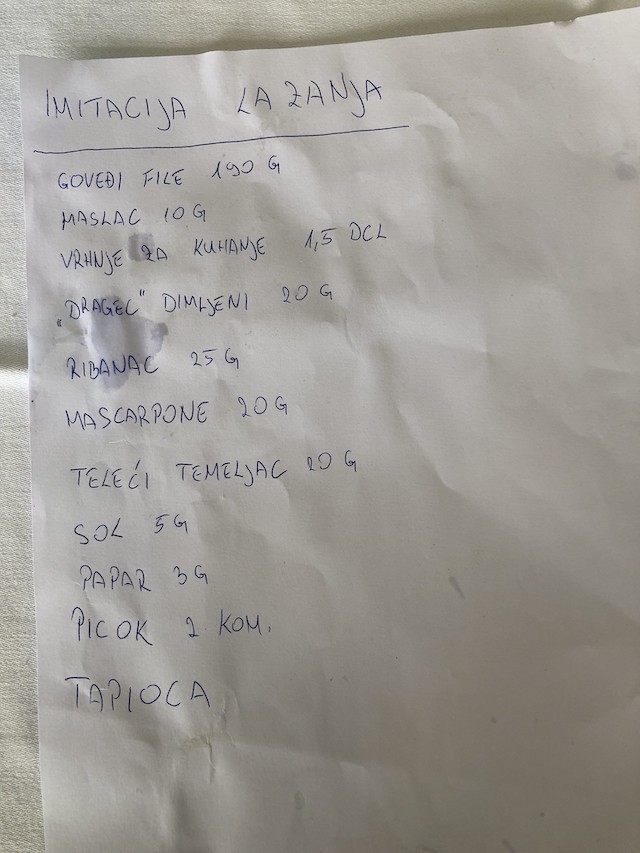 IMITACIJA LAZANJA
GOVEĐI FILE 190 G
MASLAC 10 G
VRHNJE ZA KUHANJE 1,5 DCL
„DRAGEC" DIMLJENI 20 G
RIBANAC 25 G
MASCARPONE 20 G
TELEĆI TEMELJAC 20 G
SOL 5G
PAPAR 3G
PICOK 2 KOM.
TAPIOCA